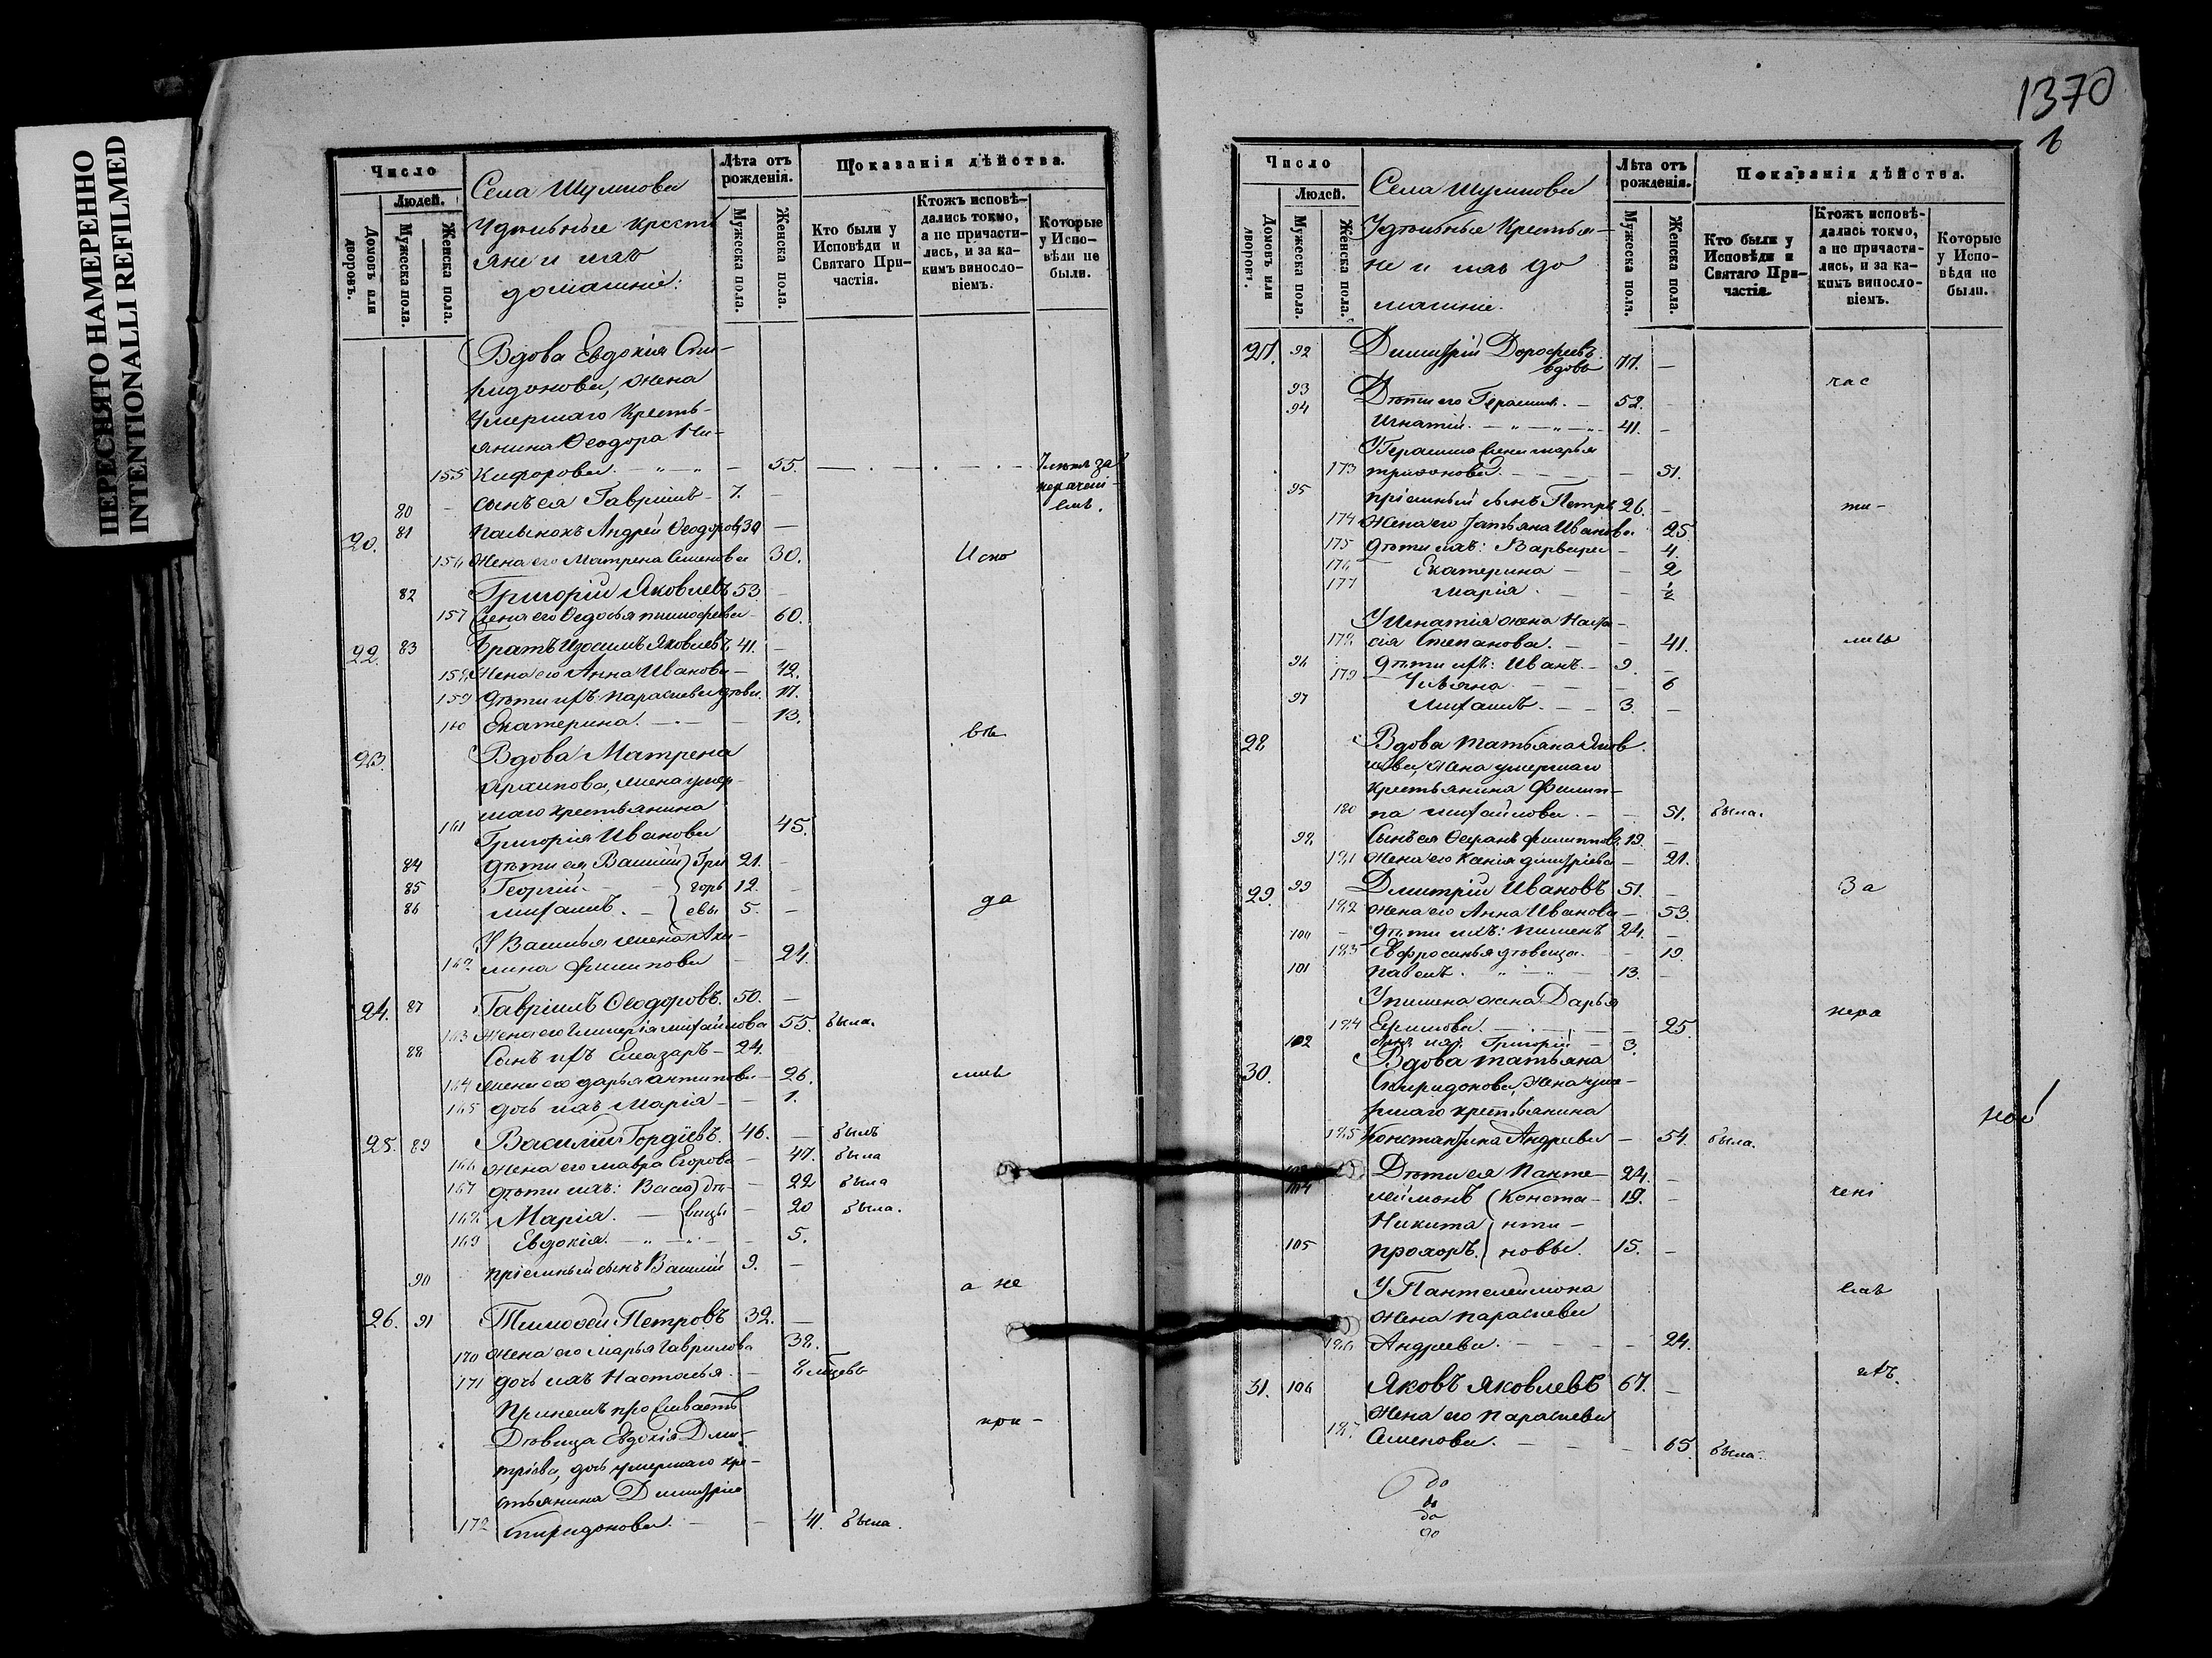 ПЕРЕСНЯТО НАМЕРЕННО
INTENTIONALLI REFILMED
Число
Людей.
Домовъ или дворовъ.
Мужеска пола.
Женска пола.
Села Шумкова
Удѣльные крестья
яне и ихъ
домашніе:
Лѣта отъ рожденія.
Мужеска пола.
Женска пола.
Показанія дѣйства.
Кто были у Исповѣди и Святаго При-
частія.
Ктожъ исповѣ-
дались токмо,
а не причасти-
лись, и за ка-
кимъ винosло-
віемъ.
Которые
у Испо-
вѣди не
были.
Вдова Евдокія Спи-
ридонова, жена
умершаго кресть-
янина Ѳеодора Ни-
155 Кифорова 55.
80 сынъ ея Гавріилъ 7.
20. 81 Андрей Ѳеодоровъ 30
156 Жена его Матрена Семенова 30. Испо
82 Григорій Яковлевъ 53
157 Жена его Ѳедосья Тимоѳеева 60.
22. 83 Братъ Изосимъ Яковлевъ 41.
158 Жена его Анна Иванова 42.
159 Дѣти ихъ: Параскева дѣвица 17.
160 Екатерина. 13.
вѣ
23. Вдова Матрена
Архипова, жена умер-
шаго крестьянина
161 Григорія Иванова 45.
84 Дѣти ея Василій Гри 21.
85 Георгій горь 12.
86 Михаилъ. евы 5. да
У Василья жена Аку-
162 лина Филипова 21.
24. 87 Гавріилъ Ѳеодоровъ. 50.
163 Жена его Гликерія Михайлова 55. была.
88 Сынъ ихъ Елазаръ 24.
164 Жена его Дарья Антипова 26. лись
165 дочь ихъ Марія 1.
25. 89 Василій Гордіевъ. 46. былъ
166 Жена его Мавра Егорова 47. была
167 дѣти ихъ: Васса дѣ- 22 была
168 Марія. вицы 20 была.
169 Евдокія. 5.
90 пріемный сынъ Василій 9.
а не
26. 91 Тимоѳей Петровъ 32.
170 Жена его Марья Гаврилова 38.
171 дочь ихъ Настасья.
При немъ проживаетъ
при-
Дѣвица Евдокія Дми-
тріева, дочь умершаго кре-
стьянина Димитрія
172 Спиридонова. 41. была.
1370
Число
Людей.
Домовъ или дворовъ.
Мужеска пола.
Женска пола.
Села Шумкова
Удѣльные Крестья-
не и ихъ до
машніе.
Лѣта отъ рожденія.
Мужеска пола.
Женска пола.
Показанія дѣйства.
Кто были у Исповѣди и Святаго При-
частія.
Ктожъ исповѣ-
дались токмо,
а не причасти-
лись, и за ка-
кимъ виносло-
віемъ.
Которые
у Испо-
вѣди не
были.
27. 92 Димитрій Дороѳеевъ
вдовъ 77.
час
93 Дѣти его Герасимъ. 52.
94 Игнатій. 41.
У Герасима жена Марья
173 Трифонова. 51.
95 пріемный сынъ Петръ 26. ти-
174 Жена его Татьяна Иванова 25.
175 Дѣти ихъ: Варвара 4.
176 Екатерина 2
177 Марія ½
У Игнатія жена Наста-
178 сія Степанова. 41. лись
96 Дѣти ихъ: Иванъ. 9.
179 Ульяна 6
97 Михаилъ. 3.
28 Вдова Татьяна Яков
лева, жена умершаго
крестьянина Филип-
180 па Михайлова 51. была.
98 Сынъ ея Филипповъ 19.
181 Жена его Ксенія Димитріева 21.
29. 99 Дмитрій Ивановъ 51. За
182 Жена его Анна Иванова 53.
100 Дѣти ихъ: Пименъ 24.
183 Евфросинья дѣвица. 19.
101 Павелъ. 13.
У Пимена жена Дарья
нера
184 Ефимова. 25.
102 сынъ ихъ Григорій 3.
30. Вдова Татьяна
Спиридонова, жена уме-
ршаго крестьянина
185 Константина Андреева 54. была.
Дѣти ея Панте- 24.
104 леймонъ Конста- 19. чені
Никита нти-
105 Прохоръ. новы. 15.
У Пантелеймона
емъ
жена Параскева
186 Андреева. 24.
31. 106 Яковъ Яковлевъ 67. ихъ.
Жена его Параскева
187 Семенова. 65. была.